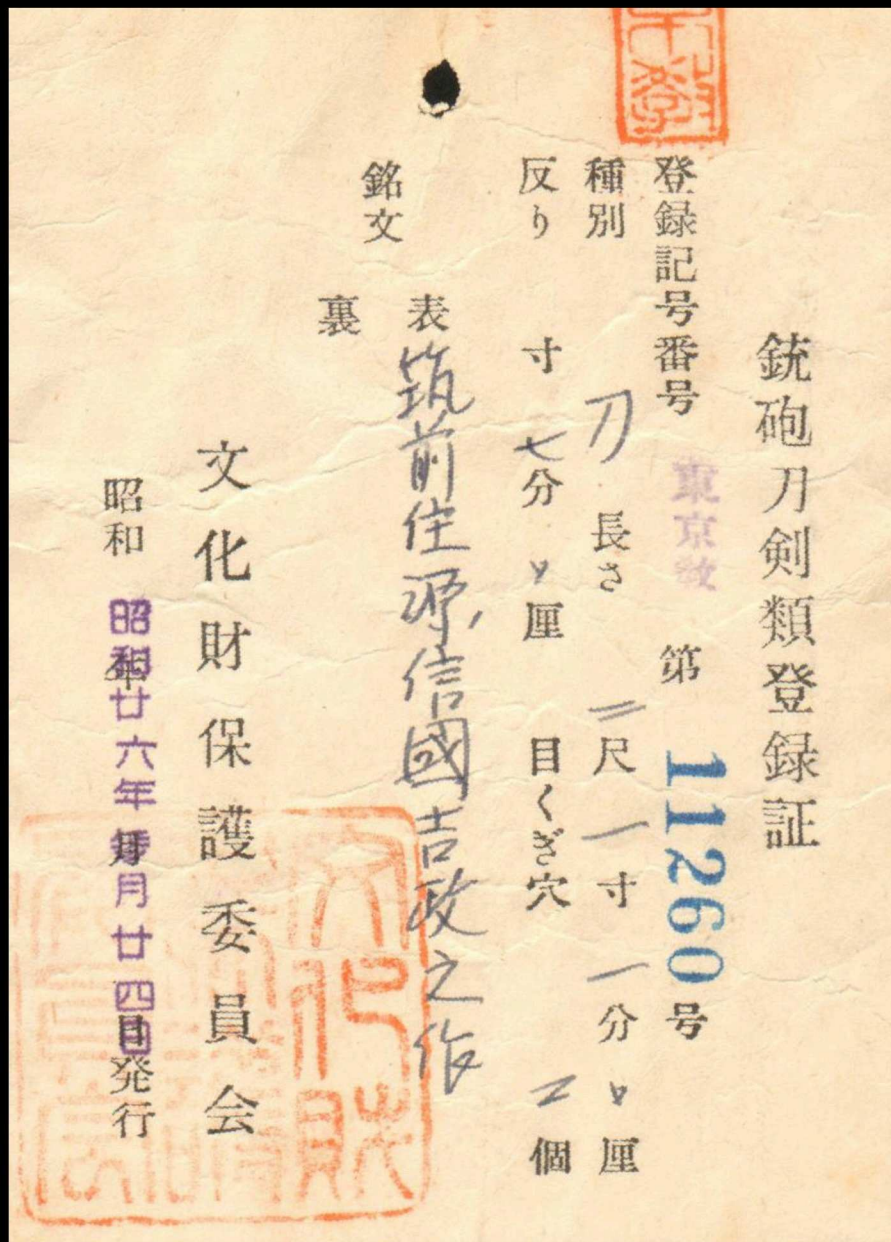 銃砲刀剣類登録証
登録記号番号 東京教 第 11260 号
種別 刀 長さ 二尺 一寸 一分 〃厘
反り 寸 七分 〃厘 目くぎ穴 二個
銘文 表 筑前住源信國吉政之作
裏
文化財保護委員会
昭和 年 月 日発行
昭和廿六年 月廿四日
文化財